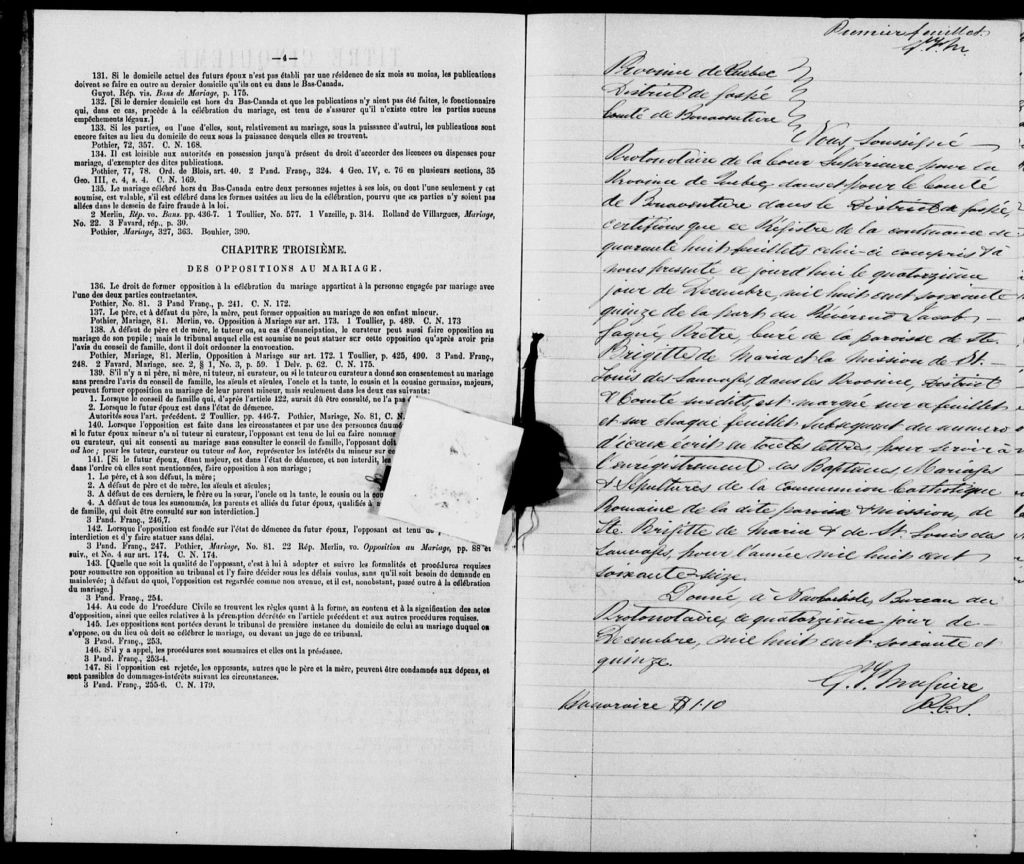 —4—
131. Si le domicile actuel des futurs époux n'est pas établi par une résidence de six mois au moins, les publications
doivent se faire en outre au dernier domicile qu'ils ont eu dans le Bas-Canada.
Guyot. Rép. vis. Bans de Mariage, p. 175.
132. [Si le dernier domicile est hors du Bas-Canada et que les publications n'y aient pas été faites, le fonctionnaire
qui, dans ce cas, procède à la célébration du mariage, est tenu de s'assurer qu'il n'existe entre les parties aucuns
empêchements légaux.]
133. Si les parties, ou l'une d'elles, sont, relativement au mariage, sous la puissance d'autrui, les publications sont
encore faites au lieu du domicile de ceux sous la puissance desquels elles se trouvent.
Pothier, 72, 357. C. N. 168.
134. Il est loisible aux autorités en possession jusqu'à présent du droit d'accorder des licences ou dispenses pour
mariage, d'exempter des dites publications.
Pothier, 77, 78. Ord. de Blois, art. 40. 2 Pand. Franç., 324. 4 Geo. IV, c. 76 en plusieurs sections, 35
Geo. III, c. 4, s. 4. C. N. 169.
135. Le mariage célébré hors du Bas-Canada entre deux personnes sujettes à ses lois, ou dont l'une seulement y est
soumise, est valable, s'il est célébré dans les formes usitées au lieu de la célébration, pourvu que les parties n'y soient pas
allées dans le dessein de faire fraude à la loi.
2 Merlin, Rép. vo. Bans. pp. 436-7. 1 Toullier, No. 577. 1 Vazeille, p. 314. Rolland de Villargues, Mariage,
No. 22. 3 Favard, rép., p. 39.
Pothier, Mariage, 327, 363. Bouhier, 390.
CHAPITRE TROISIÈME.
DES OPPOSITIONS AU MARIAGE.
136. Le droit de former opposition à la célébration du mariage appartient à la personne engagée par mariage avec
l'une des deux parties contractantes.
Pothier, No. 81. 3 Pand Franç., p. 241. C. N. 172.
137. Le père, et à défaut du père, la mère, peut former opposition au mariage de son enfant mineur.
Pothier, Mariage, 81. Merlin, vo. Opposition à Mariage sur art. 173. 1 Toullier, p. 489. C. N. 173
138. A défaut de père et de mère, le tuteur ou, au cas d'émancipation, le curateur peut aussi faire opposition au
mariage de son pupile; mais le tribunal auquel elle est soumise ne peut statuer sur cette opposition qu'après avoir pris
l'avis du conseil de famille, dont il doit ordonner la convocation.
Pothier, Mariage, 81. Merlin, Opposition à Mariage sur art. 172. 1 Toullier, p. 425, 490. 3 Pand. Franç.,
248. 2 Favard. Mariage, sec. 2, § 1, No. 3, p. 59. 1 Delv. p. 62. C. N. 175.
139. S'il n'y a ni père, ni mère, ni tuteur, ni curateur, ou si le tuteur ou curateur a donné son consentement au mariage
sans prendre l'avis du conseil de famille, les aïeuls et aïeules, l'oncle et la tante, le cousin et la cousine germains, majeurs,
peuvent former opposition au mariage de leur parent mineur, mais seulement dans les deux cas suivants:
1. Lorsque le conseil de famille qui, d'après l'article 122, aurait dû être consulté, ne l'a pas
2. Lorsque le futur époux est dans l'état de démence.
Autorités sous l'art. précédent. 2 Toullier, pp. 446-7. Pothier, Mariage, No. 81, C. N.
140. Lorsque l'opposition est faite dans les circonstances et par une des personnes énumé
si le futur époux mineur n'a ni tuteur ni curateur, l'opposant est tenu de lui en faire nommer
ou curateur, qui ait consenti au mariage sans consulter le conseil de famille, l'opposant doi
ad hoc; pour les tuteur, curateur ou tuteur ad hoc, représenter les intérêts du mineur sur ce
141. [Si le futur époux, étant majeur, est dans l'état de démence, et non interdit, le
dans l'ordre où elles sont mentionnées, faire opposition à son mariage;
1. Le père, et à son défaut, la mère;
2. A défaut de père et de mère, les aïeuls et aïeules;
3. A défaut de ces derniers, le frère ou la sœur, l'oncle ou la tante, le cousin ou la cou
4. A défaut de tous les susnommés, les parents et alliés du futur époux, qualifiés à
de famille, qui doit être consulté sur son interdiction.]
3 Pand. Franç., 246,7.
142. Lorsque l'opposition est fondée sur l'état de démence du futur époux, l'opposant est tenu de
interdiction et d'y faire statuer sans délai.
3 Pand. Franç., 247. Pothier, Mariage, No. 81. 22 Rép. Merlin, vo. Opposition au Mariage, pp. 88 et
suiv., et No. 4 sur art. 174. C. N. 174.
143. [Quelle que soit la qualité de l'opposant, c'est à lui à adopter et suivre les formalités et procédures requises
pour soumettre son opposition au tribunal et l'y faire décider sous les délais voulus, sans qu'il soit besoin de demande en
mainlevée; à défaut de quoi, l'opposition est regardée comme non avenue, et il est, nonobstant, passé outre à la célébration
du mariage.]
3 Pand. Franç., 254.
144. Au code de Procédure Civile se trouvent les règles quant à la forme, au contenu et à la signification des actes
d'opposition, ainsi que celles relatives à la péremption décrétée en l'article précédent et aux autres procédures requises.
145. Les oppositions sont portées devant le tribunal de première instance du domicile de celui au mariage duquel on
s'oppose, ou du lieu où doit se célébrer le mariage, ou devant un juge de ce tribunal.
3 Pand. Franç., 253.
146. S'il y a appel, les procédures sont sommaires et elles ont la préséance.
3 Pand. Franç., 253-4.
147. Si l'opposition est rejetée, les opposants, autres que le père et la mère, peuvent être condamnés aux dépens, et
sont passibles de dommages-intérêts suivant les circonstances.
3 Pand. Franç., 255-6. C. N. 179.
Premier feuillet.
Province de Québec
District de Gaspé
Comté de Bonaventure
Nous, Soussigné
Protonotaire de la Cour Supérieure pour la
Province de Québec, dans et pour le Comté
de Bonaventure dans le District de Gaspé,
certifions que ce Régistre de la contenance de
quarante huit feuillets celui-ci compris & à
nous présenté ce jourd'hui le quatorzième
jour de Décembre, mil huit cent soixante
quinze de la part du Révérend Jacob
Gagné, Prêtre, curé de la paroisse de Ste.
Brigitte de Maria et la mission de St.
Louis des Sauvages dans les Province, District
& Comté susdits, est marqué sur ce feuillet
et sur chaque feuillet subséquent du numéro
d'iceux écrit en toutes lettres pour servir à
l'enregistrement des Baptêmes Mariages
& Sépultures de la Communion Catholique
Romaine de la dite paroisse & mission, de
Ste. Brigitte de Maria & de St. Louis des
Sauvages, pour l'année mil huit cent
soixante-seize.
Donné, à New Carlisle, Bureau du
Protonotaire, ce quatorzième jour de
Décembre, mil huit cent soixante et
quinze.
Honoraire $1.10
P.C.S.